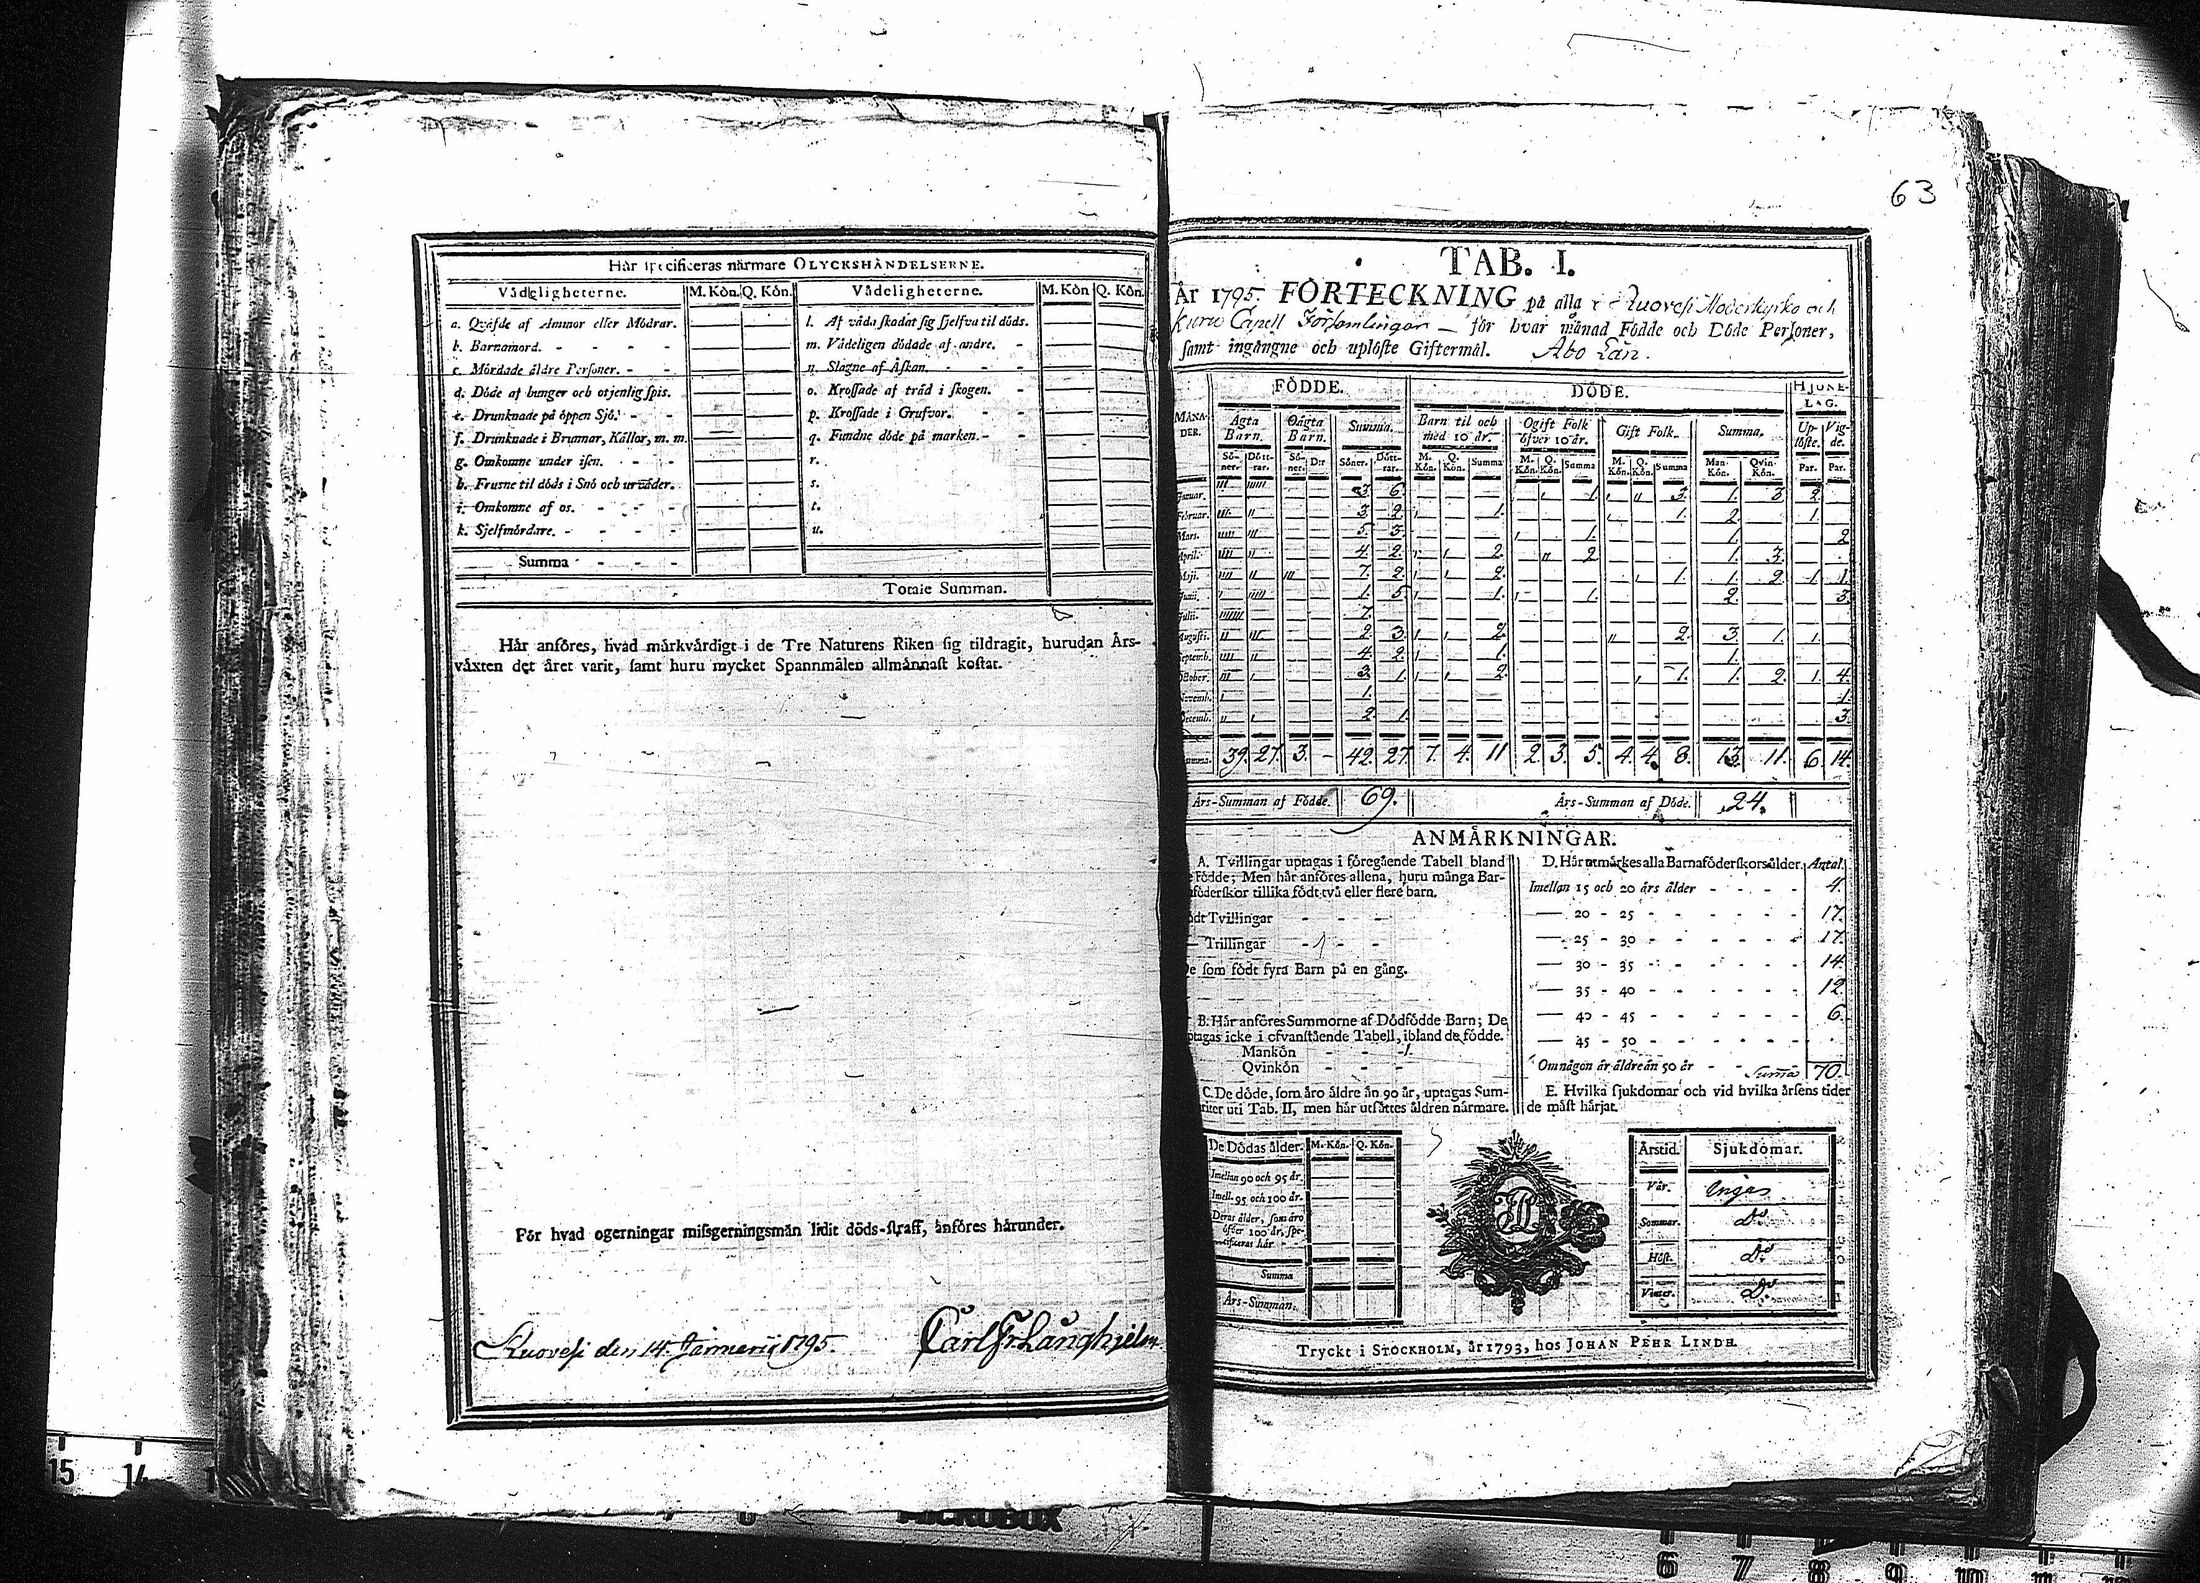 63
Här specificeras närmare OLYCKSHÄNDELSERNE.
Vådeligheterne. M. Kön. Q. Kön. Vådeligheterne. M. Kön Q. Kön.
a. Qväfde af Ammor eller Mödrar. l. Af våda skadat sig sjelfva til döds.
b. Barnamord. - - - - m. Vådeligen dödade af andre. -
c. Mördade äldre Personer. - - n. Slagne af Åskan. - - -
d. Döde af hunger och otjenlig spis. o. Krossade af träd i skogen. -
e. Drunknade på öppen Sjö. - - p. Krossade i Grufvor. - -
f. Drunknade i Brunnar, Källor, m. m. q. Fundne döde på marken. - -
g. Omkomne under isen. - - - r.
h. Frusne til döds i Snö och urväder. s.
i. Omkomne af os. - - - - t.
k. Sjelfmördare. - - - - u.
Summa - - - -
Totale Summan.
Här anföres, hvad märkvärdigt i de Tre Naturens Riken sig tildragit, hurudan Års-
växten det året varit, samt huru mycket Spannmålen allmännast kostat.
För hvad ogerningar missgerningsmän lidit döds-straff, anföres härunder.
Ruovesi den 14. Januarii 1795. Carl Fr. Långhjelm
TAB. I.
År 1795. FÖRTECKNING på alla i Ruovesi Moderkyrko och
Kuru Capell Församlingar — för hvar månad Födde och Döde Personer,
samt ingångne och uplöste Giftermål. Åbo Län.
FÖDDE. DÖDE. HJONE-
LAG.
MÅNA-
DER. Ägta
Barn. Oägta
Barn. Summa. Barn til och
med 10 år. Ogift Folk
öfver 10 år. Gift Folk. Summa. Up-
löste. Vig-
de.
Sö-
ner. Dött-
rar. Sö-
ner. Dtr Söner. Dött-
rar. M.
Kön. Q.
Kön. Summa M.
Kön. Q.
Kön. Summa M.
Kön. Q.
Kön. Summa Man-
Kön. Qvin-
Kön. Par. Par.
Januar. 3. 6. 1. 3. 1. 3. 2.
Februar. 3. 2. 1. 1. 2. 1.
Mars. 5. 3. 1. 1. 2
April. 4. 2. 2. 2 1. 3.
Maji. 7. 2. 2. 1. 1. 2. 1. 1.
Junii. 1. 5. 1. 1. 2. 3.
Julii. 7.
Augusti. 2. 3. 2. 2. 3. 1. 1.
Septemb. 4. 2. 1. 1.
October. 3. 1. 2. 1. 1. 2. 1. 4.
Novemb. 1. 1.
Decemb. 2. 1. 3.
Summa. 39. 27. 3. - 42. 27 7. 4. 11 2. 3. 5. 4. 4. 8. 13. 11. 6. 14.
Års-Summan af Födde. 69. Års-Summan af Döde. 24.
ANMÄRKNINGAR.
A. Tvillingar uptagas i föregående Tabell bland
Födde; Men här anföres allena, huru många Bar-
föderskor tillika födt två eller flere barn.
Tvillingar - - - -
— Trillingar - 1 - -
som födt fyra Barn på en gång.
B. Här anföres Summorne af Dödfödde Barn; De
uptagas icke i ofvanstående Tabell, ibland de födde.
Mankön - - - 1.
Qvinkön - - -
C. De döde, som äro äldre än 90 år, uptagas Sum-
uti Tab. II, men här utsättes åldren närmare.
De Dödas ålder. M. Kön. Q. Kön.
Imellan 90 och 95 år.
Imell. 95 och 100 år.
Deras ålder, som äro
öfver 100 år, spe-
cificeras här -
Summa
Års-Summan.
D. Här utmärkes alla Barnaföderskors ålder. Antal
Imellan 15 och 20 års ålder - - - - 4.
— 20 - 25 - - - - - - 17.
— 25 - 30 - - - - - - 17.
— 30 - 35 - - - - - - 14.
— 35 - 40 - - - - - - 12.
— 40 - 45 - - - - - - 6.
— 45 - 50 - - - - - - -
Om någon är äldre än 50 år - - Summa 70.
E. Hvilka sjukdomar och vid hvilka årsens tider
de mäst härjat.
Årstid. Sjukdomar.
Vår. Inga
Sommar. Do
Höst. Do
Vinter. Do
Tryckt i STOCKHOLM, år 1793, hos JOHAN PEHR LINDH.
15 14
MICROBOX
6 7 8 9 10 11